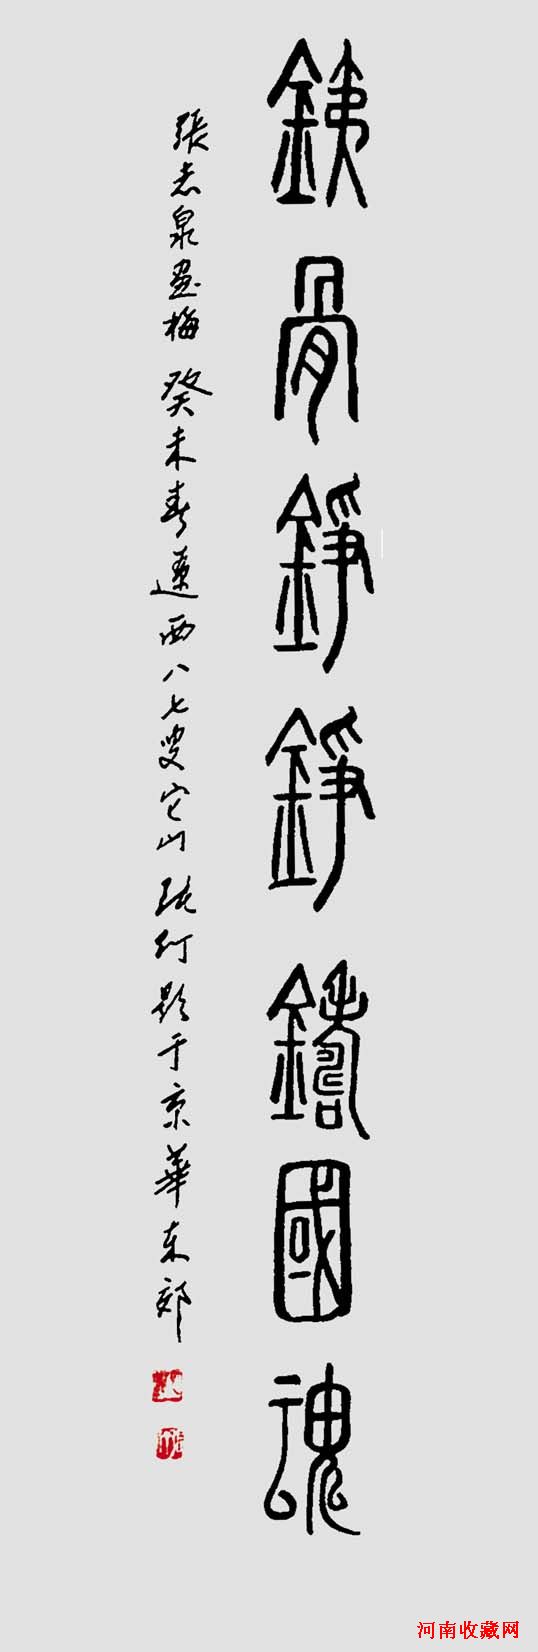 銕骨錚錚鑄國魂
張志泉畫梅 癸未春遼西八七叟它山張仃題于京華東郊
河南收藏网